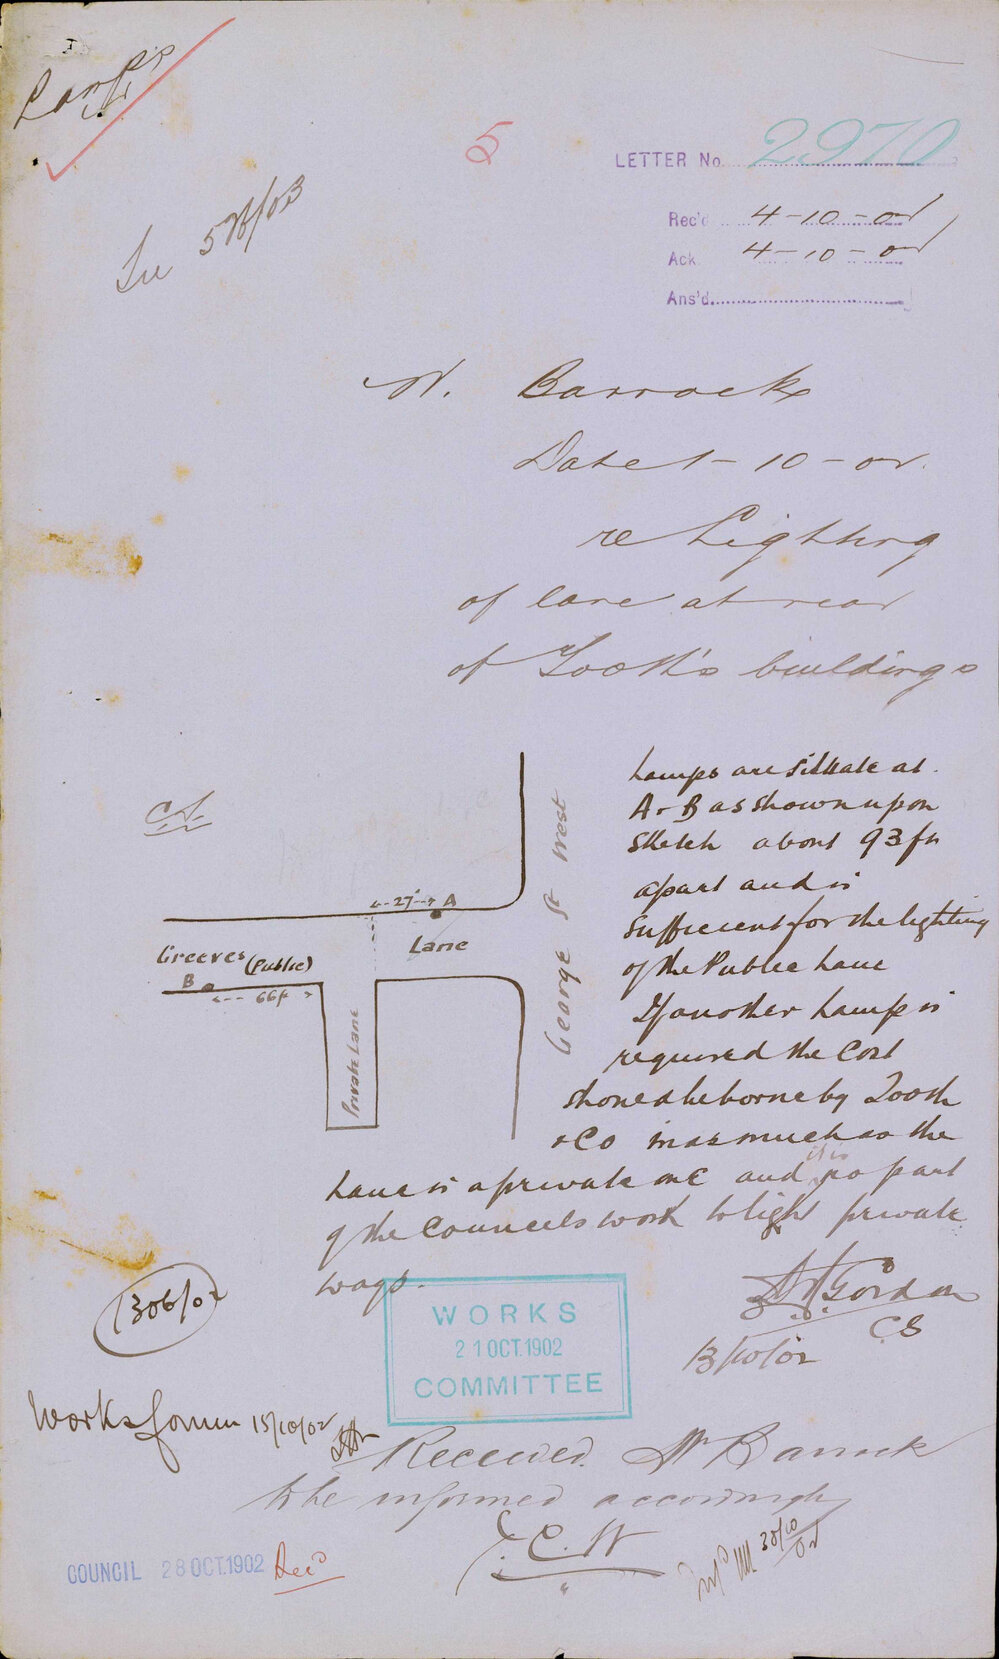 Lamps
5
LETTER No. 2970
Rec'd 4-10-02
Ack. 4-10-02
Ans'd
W. Barrack
Date 1-10-02.
re Lighting
of lane at rear
of Tooth's buildings
C.S.
Lamps are situate at
A & B as shown upon
Sketch about 93 ft
apart and is
sufficient for the lighting
of the Public Lane
If another Lamp is
required the Cost
should be borne by Tooth
& Co inasmuch as the
Lane is a private one and it is no part
of the Councils work to light private
ways.
27' A
Greeves (Public) Lane
B
66 ft
Private Lane
George St West
Gordon
C S
13/10/02
1306/02
WORKS
21 OCT. 1902
COMMITTEE
Works Comm 15/10/02
Received. Mr Barrack
to be informed accordingly
COUNCIL 28 OCT. 1902 Rec'd
30/10/02